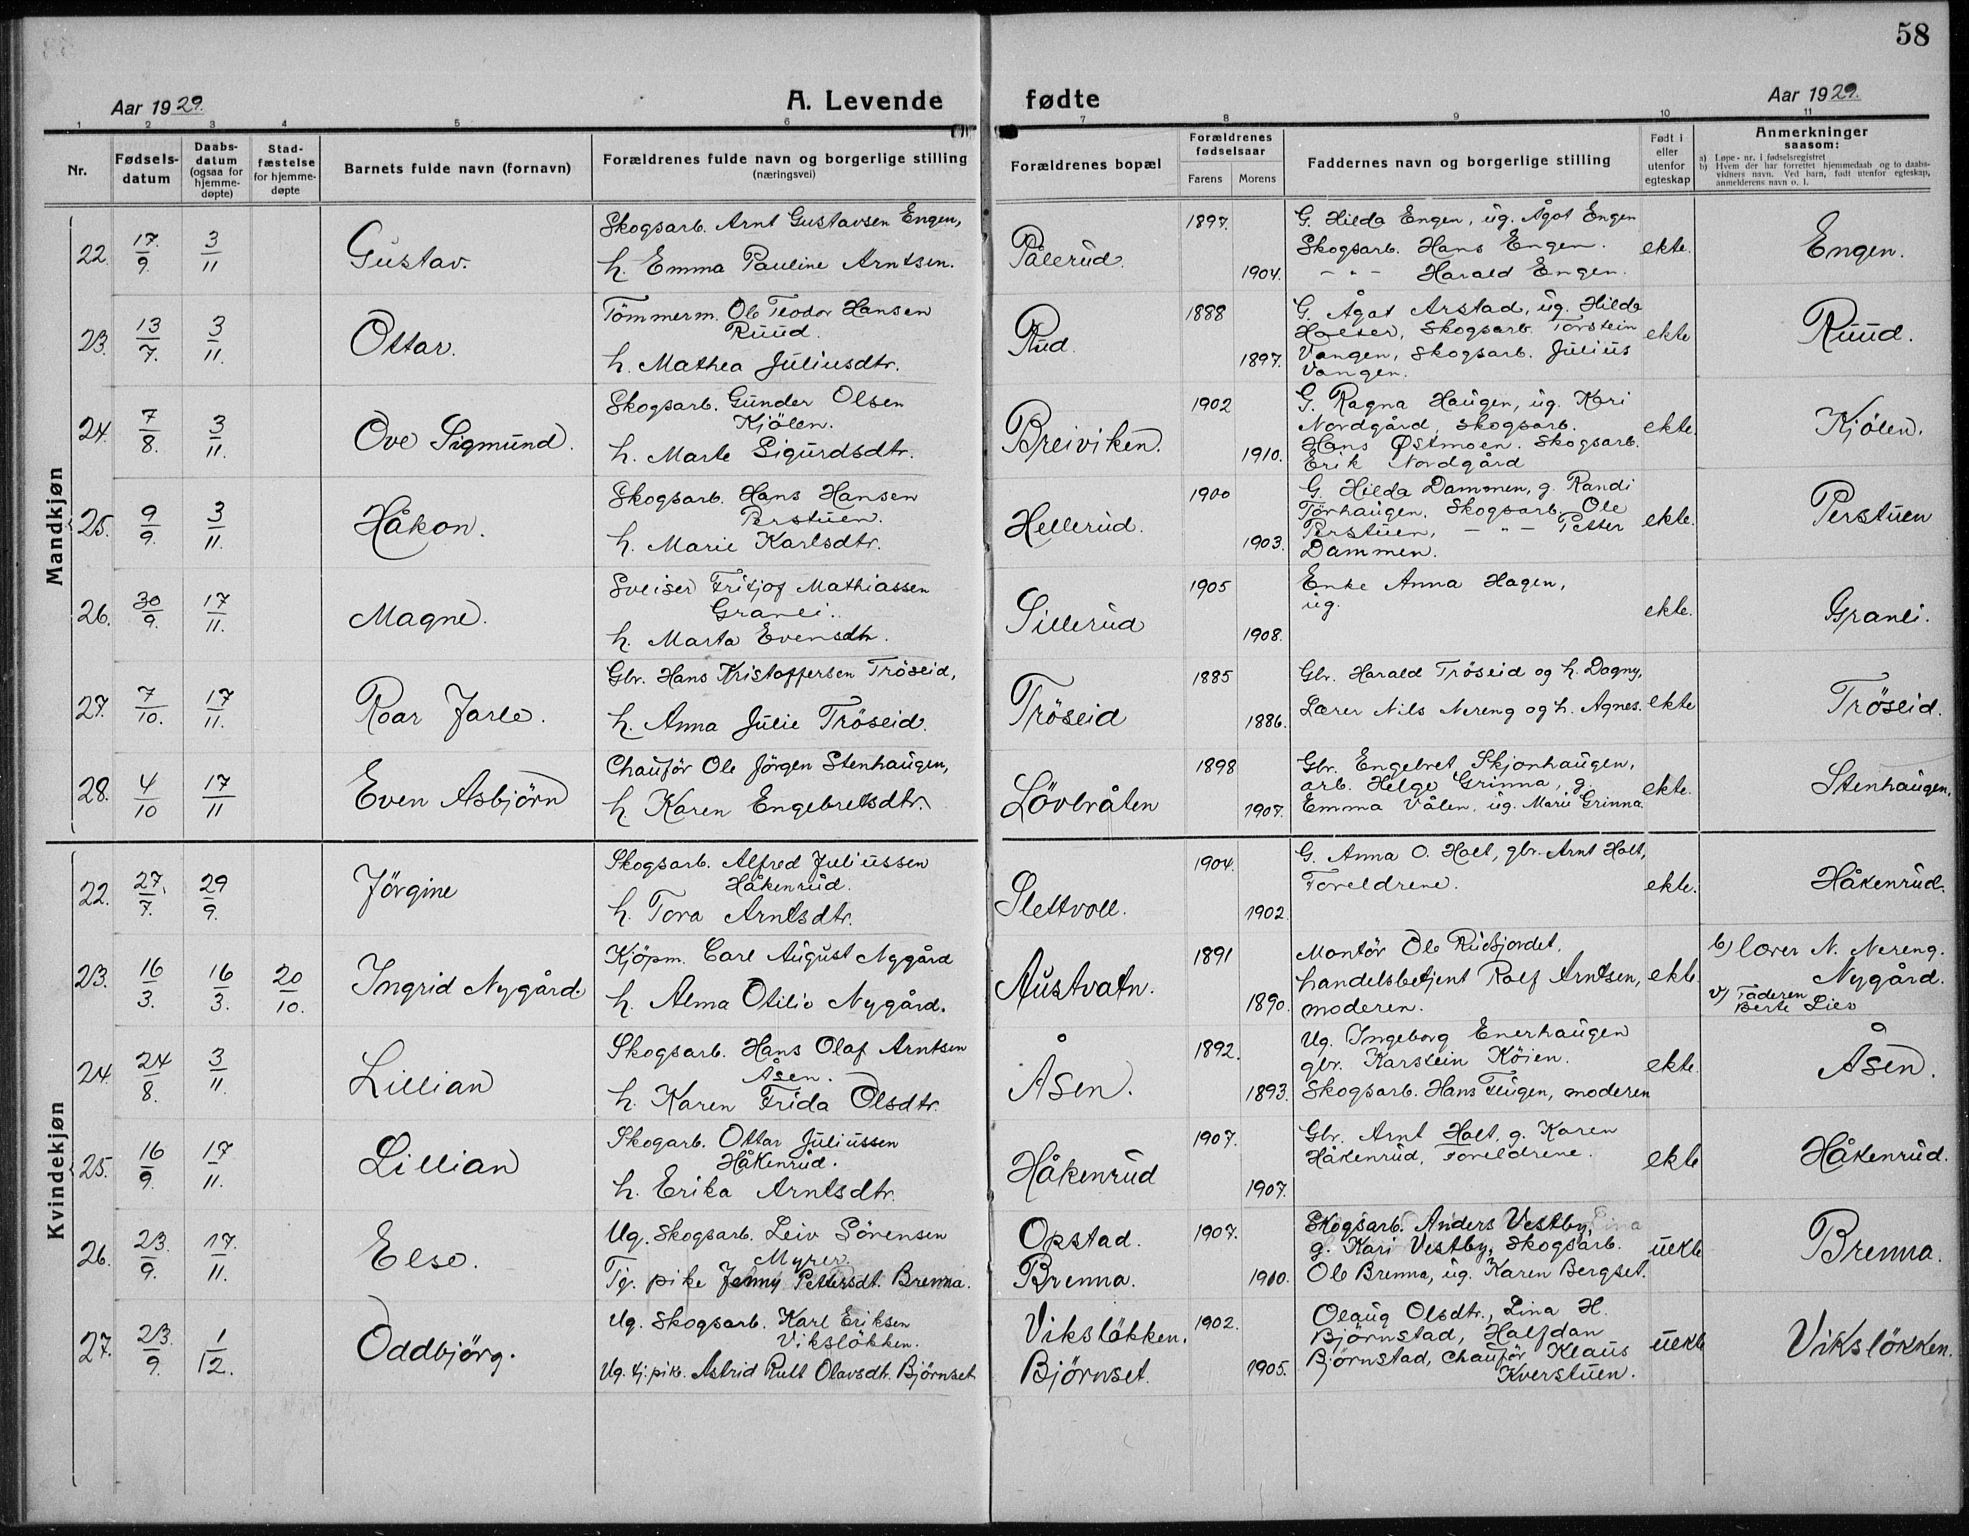 58
Aar 1929. A. Levende fødte Aar 1929.
1 2 3 4 5 6 7 8 9 10 11
Nr. Fødsels-datum Daabs-datum (ogsaa for hjemme-døpte) Stad-fæstelse for hjemme-døpte Barnets fulde navn (fornavn) Forældrenes fulde navn og borgerlige stilling (næringsvei) Forældrenes bopæl Forældrenes fødselsaar Farens Morens Faddernes navn og borgerlige stilling Født i eller utenfor egteskap Anmerkninger saasom:
a) Løpe-nr. i fødselsregistret
b) Hvem der har forrettet hjemmedaab og to daabs-vidners navn. Ved barn, født utenfor egteskap, anmelderens navn o. l.
Mandkjøn
22. 17/9. 3/11 Gustav. Skogsarb. Arnt Gustavsen Engen,
h. Emma Pauline Arntsen. Pålerud. 1897. 1904. G. Hilda Engen, ug. Ågot Engen
Skogsarb. Hans Engen.
- " - Harald Engen. ekte. Engen.
23. 13/7. 3/11. Ottar. Tömmerm. Ole Teodor Hansen
Ruud.
h. Mathea Juliusdtr. Rud. 1888 1897. G. Ågot Arstad, ug. Hilda
Holter, Skogsarb. Torstein
Vangen, Skogsarb. Julius
Vangen. ekte Ruud.
24. 7/8. 3/11. Ove Sigmund. Skogsarb. Gunder Olsen
Kjölen.
h. Marte Sigurdsdtr. Breiviken. 1902 1910. G. Ragna Haugen, ug. Kari
Nordgård, Skogsarb.
Hans Østmoen. Skogsarb.
Erik Nordgård ekte. Kjölen.
25. 9/9. 3/11. Håkon. Skogsarb. Hans Hansen
Perstuen.
h. Marie Karlsdtr. Hellerud. 1900 1903. G. Hilda Dammen, g. Randi
Törhaugen. Skogsarb. Ole
Perstuen, - " - Petter
Dammen. ekte. Perstuen
26. 30/9. 17/11. Magne. Sveiser Fritjof Mathiassen
Granli.
h. Marta Evensdtr. Sillerud 1905 1908. Enke Anna Hagen,
ug. ekte. Granli.
27. 7/10. 17/11. Roar Jarle. Gbr. Hans Kristoffersen Tröseid,
h. Anna Julie Tröseid. Tröseid 1885 1886. Gbr. Harald Tröseid og h. Dagny,
Lærer Nils Nereng og h. Agnes. ekte Tröseid.
28. 4/10 17/11 Even Asbjörn Chauför Ole Jörgen Stenhaugen,
h Karen Engebretsdtr. Lövbråten 1898 1907. Gbr. Engebret Skjonhaugen,
arb. Helge Grinna, g.
Emma Vålen, ug. Marie Grinna ekte. Stenhaugen.
Kvindekjøn
22. 27/7. 29/9. Jörgine Skogsarb. Alfred Juliussen
Håkenrud.
h. Tora Arntsdtr. Slettvoll. 1904. 1902. G. Anna O. Holt, gbr. Arnt Holt,
Foreldrene. ekte. Håkenrud.
23. 16/3. 16/3. 20/10. Ingrid Nygård. Kjöpm. Carl August Nygård
h. Alma Otilie Nygård. Austvatn. 1891 1890. Montör Ole Rudsjordet,
handelsbetjent Rolf Arntsen,
moderen. ekte. b) lærer N. Nereng.
Nygård.
v) Faderen
Berte Lie
24. 24/8. 3/11. Lillian Skogsarb. Hans Olaf Arntsen
Åsen.
h. Karen Frida Olsdtr. Åsen. 1892. 1893. Ug. Ingeborg Enerhaugen
gbr. Karstein Köien.
Skogsarb. Hans Flugen, moderen ekte. Åsen.
25. 16/9. 17/11. Lillian Skogarb. Ottar Juliussen
Håkenrud.
h. Erika Arntsdtr. Håkenrud 1907. 1907. Gbr. Arnt Holt, g. Karen
Håkenrud, Foreldrene. ekte Håkenrud.
26. 23/9. 17/11. Else. Ug. Skogsarb. Leiv Sörensen
Myrer.
Tj. pike Jenny Pettersdt. Brenna. Opstad.
Brenna. 1907. 1910. Skogsarb. Anders Vestby,
g. Kari Vestby, Skogsarb.
Ole Brenna, ug. Karen Bergset. uekte Brenna.
27. 23/9. 1/12. Oddbjörg. Ug. Skogsarb. Karl Eriksen
Vikslökken.
Ug. tj. pike. Astrid Rutt Olavsdt. Björnset Vikslökken.
Björnset. 1902. 1905. Olaug Olsdtr., Lina H.
Björnstad, Halfdan
Björnstad, Chauför Klaus
Kverstuen. uekte Vikslökken.